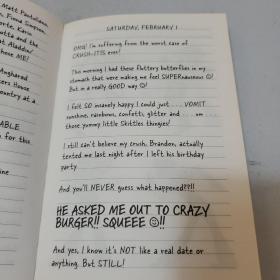 Matt
Fiona Simpson,
orte, Karin
utta and the
t Aladdin!
those ME!
Angharad
ers House
ountry at a
ABLE
n for this
ine
SATURDAY, FEBRUARY 1
OMG! I'm suffering from the worst case of
CRUSH-ITIS ever!
This morning I had these fluttery butterflies in my
stomach that were making me feel SUPERnauseous ☹!
But in a really GOOD way ☺!
I felt SO insanely happy I could just . . . VOMIT
sunshine, rainbows, confetti, glitter and . . . um . . .
those yummy little Skittles thingies!
I still can't believe my crush, Brandon, actually
texted me last night after I left his birthday
party.
And you'll NEVER guess what happened??!!
HE ASKED ME OUT TO CRAZY
BURGER!! SQUEEE ☺!!
And yes, I know it's NOT like a real date or
anything. But STILL!